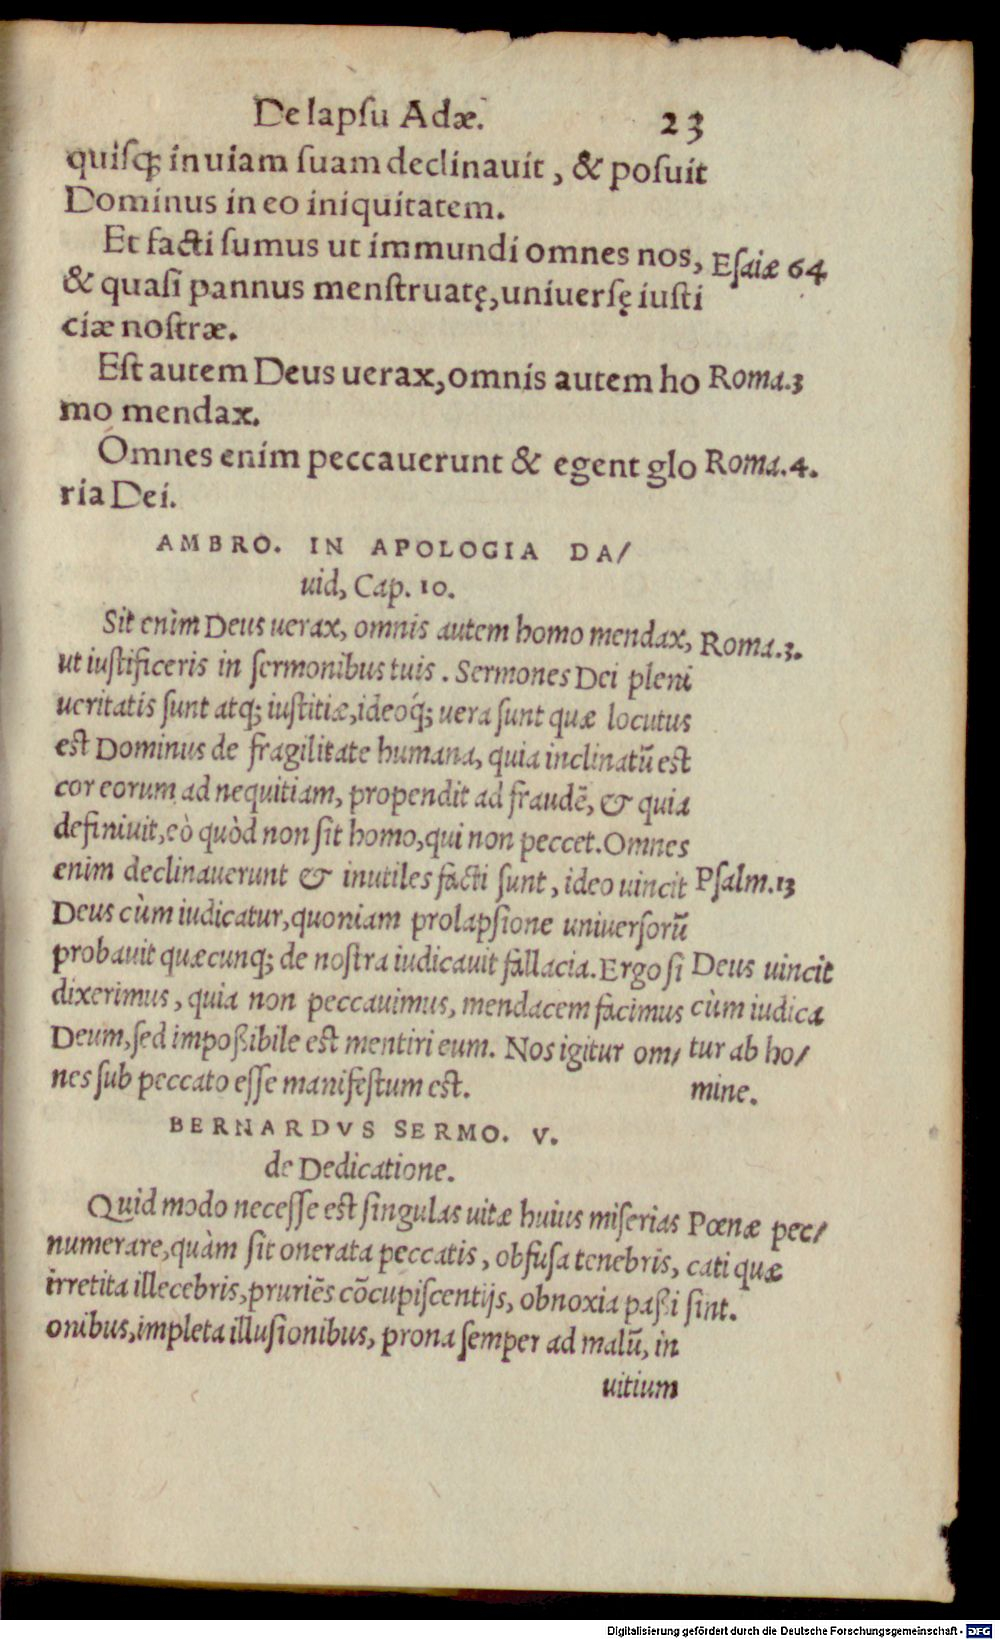 De lapsu Adæ. 23
quisq; in uiam suam declinauit, & posuit
Dominus in eo iniquitatem.
Et facti sumus ut immundi omnes nos, Esaiæ 64
& quasi pannus menstruatę, uniuersę iusti
ciæ nostræ.
Est autem Deus uerax, omnis autem ho Roma.3
mo mendax.
Omnes enim peccauerunt & egent glo Roma.4.
ria Dei.
AMBRO. IN APOLOGIA DA/
uid, Cap. 10.
Sit enìm Deus uerax, omnis autem homo mendax, Roma.3.
ut iustificeris in sermonibus tuis. Sermones Dei pleni
ueritatis sunt atq; iustitiæ, ideoq́; uera sunt quæ locutus
est Dominus de fragilitate humana, quia inclinatũ est
cor eorum ad nequitiam, propendit ad fraudẽ, & quia
definiuit, eò quòd non sit homo, qui non peccet. Omnes
enim declinauerunt & inutiles facti sunt, ideo uincit Psalm.13
Deus cùm iudicatur, quoniam prolapsione uniuersorũ
probauit quæcunq; de nostra iudicauit fallacia. Ergo si Deus uincit
dixerimus, quia non peccauimus, mendacem facimus cùm iudica
Deum, sed impoßibile est mentiri eum. Nos igitur om/ tur ab ho/
nes sub peccato esse manifestum est. mine.
BERNARDVS SERMO. V.
de Dedicatione.
Quid modo necesse est singulas uitæ huius miserias Pœnæ pec/
numerare, quàm sit onerata peccatis, obfusa tenebris, cati quæ
irretita illecebris, pruriẽs cõcupiscentijs, obnoxia paßi sint.
onibus, impleta illusionibus, prona semper ad malũ, in
uitium
Digitalisierung gefördert durch die Deutsche Forschungsgemeinschaft - DFG